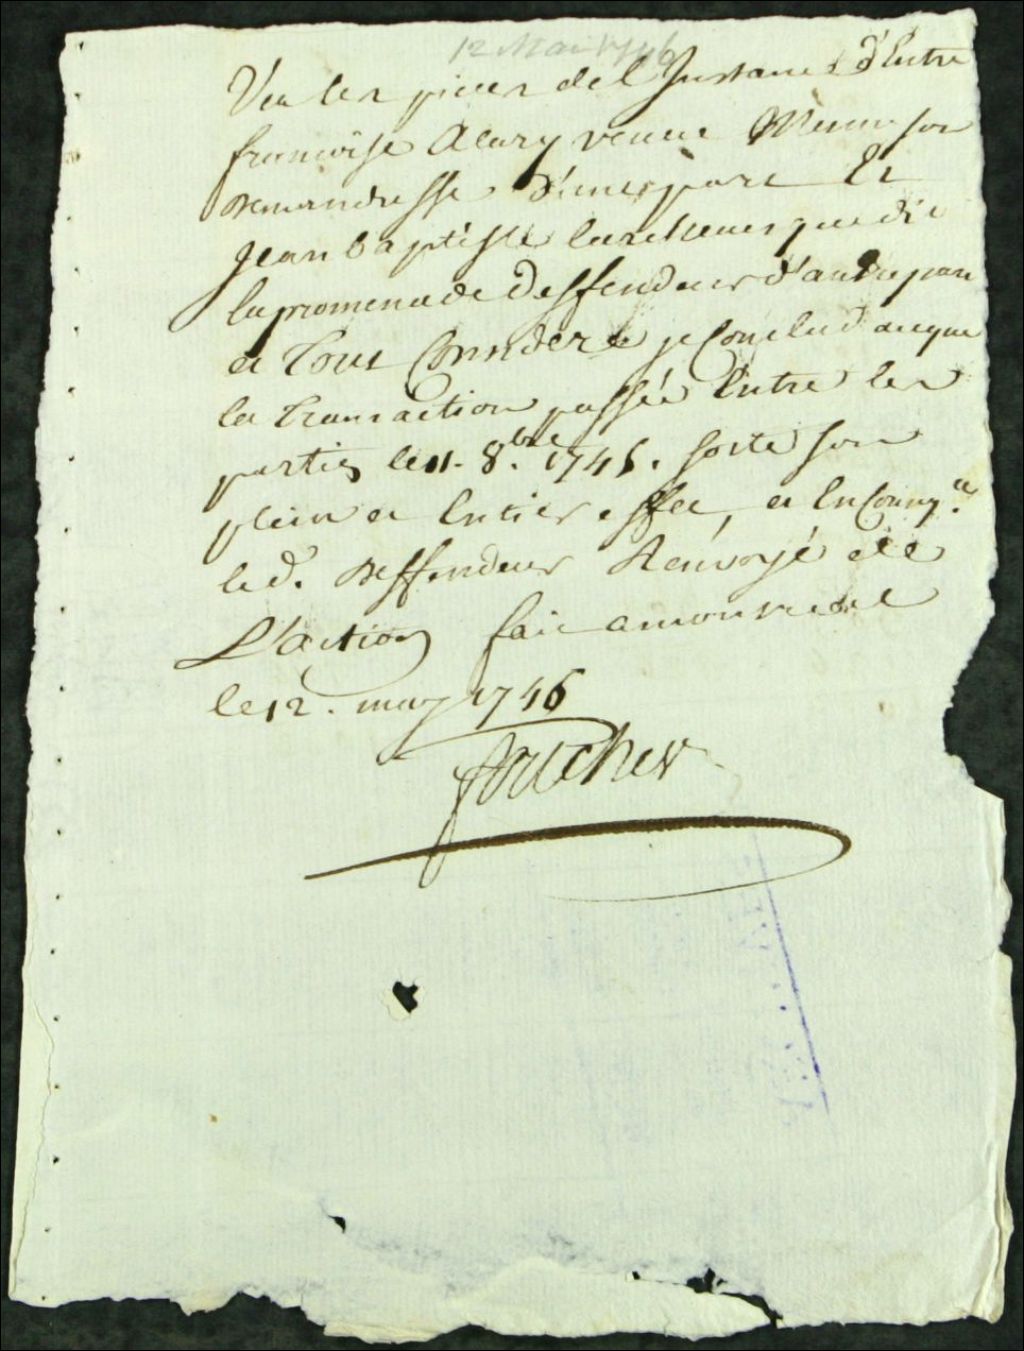 12 Mai 1746
Veu les pieces de l'Instance d'Entre
francoise Alary veuve
demandresse d'une part Et
Jean baptiste larchevesque dit
la promenade deffendeur d'autre part
et Tout Consideré je Conclud aceque
la Transaction passée Entre les
parties le 11. 8.bre 1745. sorte son
plein et Entier effet, et En Conseq.ce
led. deffendeur Renvoyé de
L'action fait a monreal
le 12. may 1746
foucher